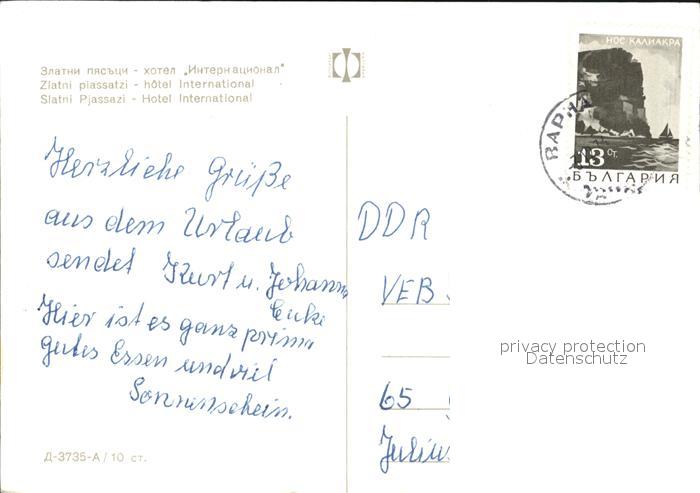 Златни пясъци - хотел „Интернационал“
Zlatni piassatzi - hôtel International
Slatni Pjassazi - Hotel International
НОС КАЛИАКРА
13 СТ.
БЪЛГАРИЯ
ВАРНА
Herzliche Grüße
aus dem Urlaub
sendet Kurt u. Johanna
Hier ist es ganz prima
gutes Essen und viel
Sonnenschein.
DDR
VEB
65
Julius
privacy protection
Datenschutz
Д-3735-А / 10 ст.